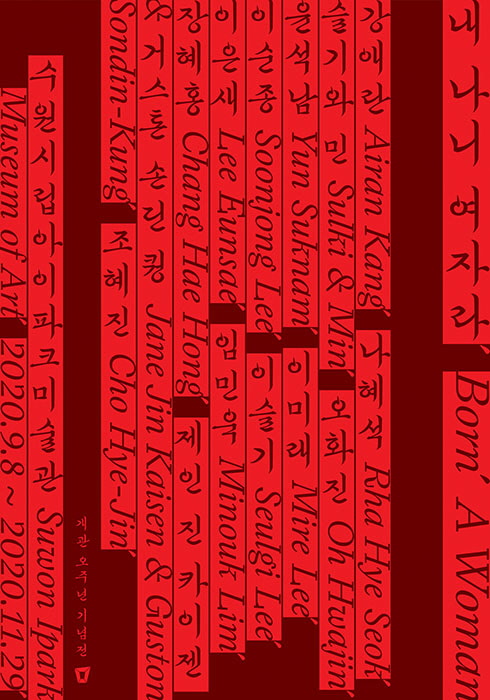 내 나니 여자라 Born, A Woman
강애란 Airan Kang 나혜석 Rha Hye Seok
슬기와 민 Sulki & Min 오화진 Oh Hwajin
윤석남 Yun Suknam 이미래 Mire Lee
이순종 Soonjong Lee 이슬기 Seulgi Lee
이은새 Lee Eunsae 임민욱 Minouk Lim
장혜홍 Chang Hae Hong 제인 진 카이젠
& 거스톤 손딘 퀑 Jane Jin Kaisen & Guston
Sondin-Kung 조혜진 Cho Hye-Jin
개관 오주년 기념전
수원시립아이파크미술관 Suwon Ipark
Museum of Art 2020.9.8 ~ 2020.11.29